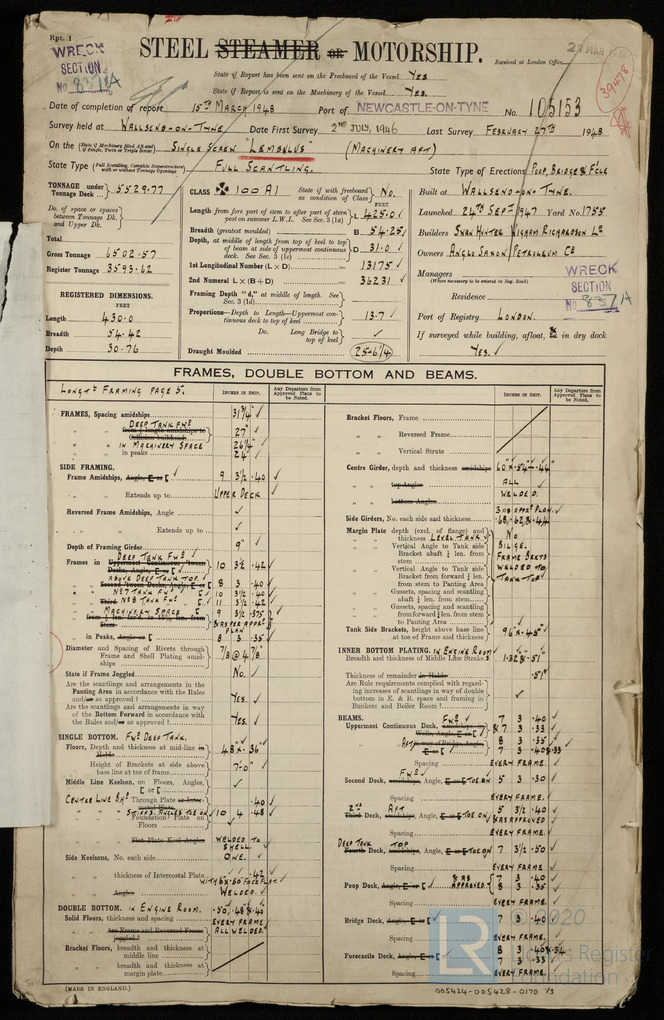 Rpt. 1
WRECK SECTION No. 837/A
STEEL STEAMER OR MOTORSHIP.
Received at London Office
State if Report has been sent on the Freeboard of the Vessel YES
State if Report is sent on the Machinery of the Vessel. YES.
Date of completion of report 15TH MARCH 1948 Port of NEWCASTLE-ON-TYNE No. 105153
39478
Survey held at WALLSEND-ON-TYNE Date First Survey 2ND JULY, 1946 Last Survey FEBRUARY 27TH 1948
On the SINGLE SCREW "LEMBULUS" (MACHINERY AFT)
State Type FULL SCANTLING. State Type of Erections POOP, BRIDGE & F'CLE
TONNAGE under Tonnage Deck 5529.77
Do. of space or spaces between Tonnage Dk. and Upper Dk.
Total
Gross Tonnage 6502.57
Register Tonnage 3593.62
REGISTERED DIMENSIONS.
FEET
Length 430.0
Breadth 54.42
Depth 30.76
CLASS 100 A1 State if with freeboard as condition of Class No.
Length from fore part of stem to after part of stern post on summer L.W.L. See Sec. 3 (1a) L 425.0
Breadth (greatest moulded) B 54.25
Depth, at middle of length from top of keel to top of beam at side of uppermost continuous deck. See Sec. 3 (1c) D 31.0
1st Longitudinal Number (L × D) 13175
2nd Numeral L × (B + D) 36231
Framing Depth "d," at middle of length. See Sec. 3 (1d)
Proportions—Depth to Length—Uppermost continuous deck to top of keel 13.7
Do. Long Bridge to top of keel
Draught Moulded 25-6¼
Built at WALLSEND-ON-TYNE.
Launched 24TH SEPT 1947 Yard No. 1755
Builders SWAN HUNTER WIGHAM RICHARDSON LD
Owners ANGLO SAXON PETROLEUM CO
Managers
(Where necessary to be entered in Reg. Book)
Residence
WRECK SECTION No. 837/A
Port of Registry LONDON.
If surveyed while building, afloat, or in dry dock
YES.
FRAMES, DOUBLE BOTTOM AND BEAMS.
LONGTL FRAMING PAGE 5.
INCHES IN SHIP.
Any Departure from Approved Plans to be Noted.
FRAMES, Spacing amidships 31¾"
DEEP TANK FWD 27"
IN MACHINERY SPACE 26¼"
in peaks 24"
SIDE FRAMING.
Frame Amidships, Angle, E or [ 9 3½ .40
Extends up to UPPER DECK
Reversed Frame Amidships, Angle
Extends up to
Depth of Framing Girder 9"
DEEP TANK FWD
Frames in Uppermost Continuous 'tween Decks, Angle, E or [ 10 3½ .42
ABOVE DEEP TANK TOP
Second 'tween Decks, Angle, E or [ 8 3 .40
NO 7 TANK FWD 10 3½ .40
NO 8 TANK FWD 11 3½ .42
MACHINERY SPACE 9 3½ .375
& AS PER APPD PLAN
in Peaks, Angle or [ 8 3 .35
Diameter and Spacing of Rivets through Frame and Shell Plating amidships 7/8 @ 4 7/8"
State if Frame Joggled No.
Are the scantlings and arrangements in the Panting Area in accordance with the Rules and/or as approved? YES.
Are the scantlings and arrangements in way of the Bottom Forward in accordance with the Rules and/or as approved? YES.
SINGLE BOTTOM. FWD DEEP TANK.
Floors, Depth and thickness at mid-line in Holds 48 × .36"
Height of Brackets at side above base line at toe of frame 7'-0"
Middle Line Keelson, on Floors, Angles, [ or E
CENTRE LINE BHD Through Plate .40
STIFFS. ANGLES TOE ON 10 4 .48
Foundation Plate on Floors
Flat Plate Keel Angles WELDED TO SHELL.
Side Keelsons, No. each side ONE.
thickness of Intercostal Plate .42
WITH 6×.60 FACE PLAT
Angles WELDED.
DOUBLE BOTTOM. IN ENGINE ROOM.
Solid Floors, thickness and spacing .50, .48 & .40 EVERY FRAME
Are Frame and Reversed Frame joggled? ALL WELDED.
Bracket Floors, breadth and thickness at middle line
breadth and thickness at margin plate
(MADE IN ENGLAND.)
INCHES IN SHIP.
Any Departure from Approved Plans to be Noted.
Bracket Floors, Frame
Reversed Frame
Vertical Struts
Centre Girder, depth and thickness amidships 60 × .54 - .44
top Angles ALL
bottom Angles WELDED.
Side Girders, No. each side and thickness 3 AS APPD PLAN .68, .62, & .44
Margin Plate depth (excl. of flange) and thickness LEVEL TANK No
Vertical Angle to Tank side Bracket abaft ¼ len. from stem BILGE.
Vertical Angle to Tank side Bracket forward ¼ len. from stem to Panting Area FRAME BKTS WELDED TO TANK TOP
Gussets, spacing and scantling abaft ¼ len. from stem
Gussets, spacing and scantling forward ¼ len. from stem to Panting Area
Tank Side Brackets, height above base line at toe of Frame and thickness 96" × .45"
INNER BOTTOM PLATING. IN ENGINE ROOM
Breadth and thickness of Middle Line Strake 1.32 & .51"
Thickness of remainder in Holds .51"
Are Rule requirements complied with regarding increases of scantlings in way of double bottom in E. & B. space and framing in Bunkers and Boiler Room?
BEAMS.
Uppermost Continuous Deck, amidships FWD 7 3 .40
& 7 3 .33
AFT 8 3 .35
7 3 .40 & .33
Spacing EVERY FRAME.
Second Deck, amidships, Angle, E or [ TOE ON FWD 5 3 .30
Spacing EVERY FRAME.
2ND AFT Third Deck, amidships, Angle, E or [ TOE ON 5 3½ .40
& AS APPROVED
Spacing EVERY FRAME.
DEEP TANK TOP Fourth Deck, amidships, Angle, E or [ TOE ON 7 3½ .50
Spacing EVERY FRAME
Poop Deck, Angle, E or [ & AS APPROVED. 7 3 .40
8 3 .35
Spacing EVERY FRAME.
Bridge Deck, Angle, E or [ 7 3 .40
Spacing EVERY FRAME.
Forecastle Deck, Angle, E or [ 8 3 .40 & .34
7 3 .33
Spacing EVERY FRAME.
LR © 2020 Lloyd's Register Foundation
005424-005428-0170 1/3